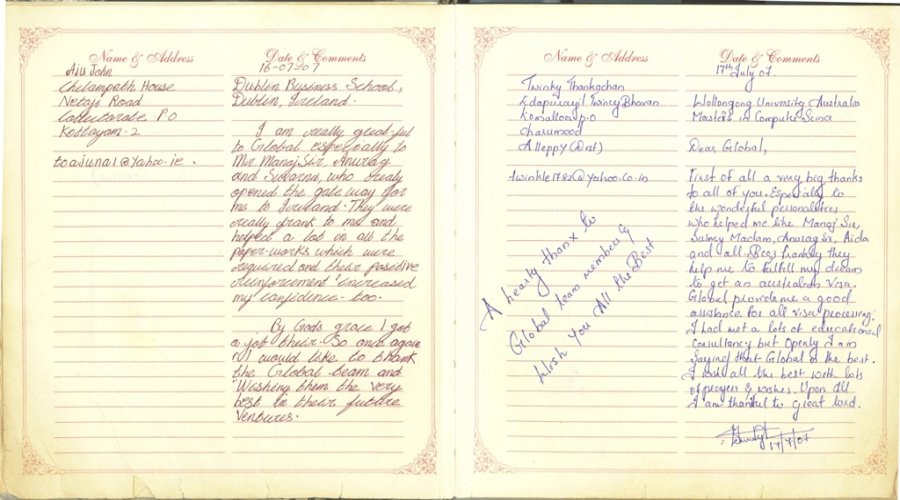 Name & Address
Date & Comments
Aju John
Chelampath House
Netaji Road
Collectorate. P.O
Kottayam-2
toajuna1@yahoo.ie.
16-07-07
Dublin Business School,
Dublin, Ireland.
I am really greatful
to Global especially to
Mr. Manoj Sir, Anurag
and Suvarna, who realy
opened the gate way for
me to Ireland. They were
really frank to me and
helped a lot in all the
paper-works which were
required and their positive
reinforcement increased
my confidence too.
By Gods grace I got
a job their. So once again
I would like to thank
the Global team and
Wishing them the very
best in their future
Ventures.
Name & Address
Date & Comments
Twinky Thankachan
Twincy Bhavan
P.O
Charumood
Alleppy (Dist)
twinkle1782@yahoo.co.in
A hearly thanx to
Global team members &
Wish You All the Best
17th July 07.
Wollongong University, Australia
Masters in
Dear Global,
First of all a very big thanks
to all of you. Especially to
the wonderful personalities
who helped me like Manoj Sir,
Madam, Anurag Sir, Aida
and all. frankly they
help me to fulfill my dream
to get an australian Visa.
Global provide me a good
assistance for all visa processing.
I had met a lots of educational
Consultancy but Openly I am
Saying that Global is the best.
I wish all the best with lots
of prayers & wishes. Upon all
I am thankful to great lord.
17/7/07